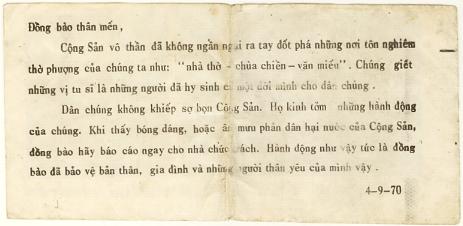 Đồng bào thân mến,
Cộng Sản vô thần đã không ngần ngại ra tay đốt phá những nơi tôn nghiêm
thờ phượng của chúng ta như: "nhà thờ - chùa chiền - văn miếu". Chúng giết
những vị tu sĩ là những người đã hy sinh cả một đời mình cho dân chúng.
Dân chúng không khiếp sợ bọn Cộng Sản. Họ kinh tởm những hành động
của chúng. Khi thấy bóng dáng, hoặc âm mưu phản dân hại nước của Cộng Sản,
đồng bào hãy báo cáo ngay cho nhà chức trách. Hành động như vậy tức là đồng
bào đã bảo vệ bản thân, gia đình và những người thân yêu của mình vậy.
4-9-70